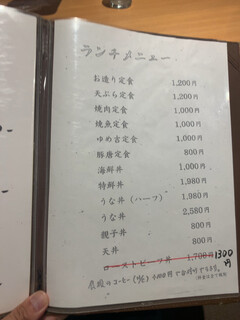 ランチメニュー
お造り定食 1,200円
天ぷら定食 1,200円
焼肉定食 1,000円
焼魚定食 1,000円
ゆめ吉定食 1,000円
豚唐定食 800円
海鮮丼 1,000円
特鮮丼 1,980円
うな丼(ハーフ) 1,980円
うな丼 2,580円
親子丼 800円
天丼 800円
ローストビーフ丼 1,700円 1300円
食後のコーヒー